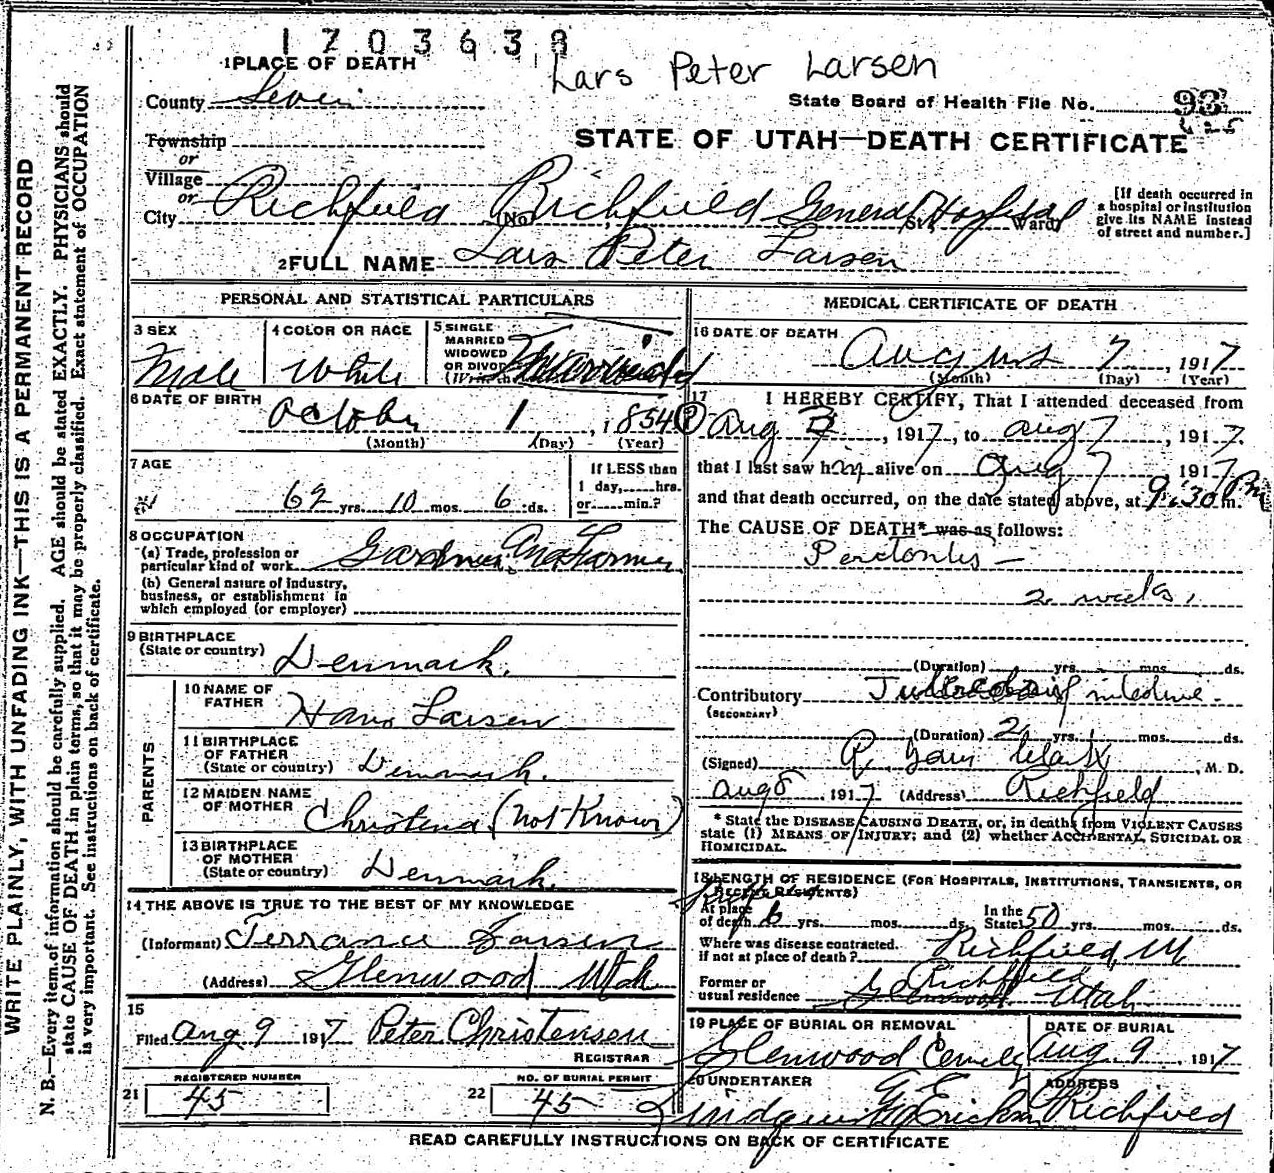 1703638
Lars Peter Larsen
1 PLACE OF DEATH
County Sevier
State Board of Health File No. 93
Township
or
STATE OF UTAH—DEATH CERTIFICATE
Village
or
City Richfield (No. Richfield General Hospital St., Ward)
[If death occurred in
a hospital or institution
give its NAME instead
of street and number.]
2 FULL NAME Lars Peter Larsen
PERSONAL AND STATISTICAL PARTICULARS
3 SEX
Male
4 COLOR OR RACE
White
5 SINGLE
MARRIED
WIDOWED
OR DIVO
6 DATE OF BIRTH
October 1, 1854
(Month) (Day) (Year)
7 AGE
62 yrs. 10 mos. 6 ds.
If LESS than
1 day, hrs.
or min.?
8 OCCUPATION
(a) Trade, profession or
particular kind of work Gardner and Farmer
(b) General nature of industry,
business, or establishment in
which employed (or employer)
9 BIRTHPLACE
(State or country) Denmark.
PARENTS
10 NAME OF
FATHER Hans Larsen
11 BIRTHPLACE
OF FATHER
(State or country) Denmark.
12 MAIDEN NAME
OF MOTHER Christena (Not Know)
13 BIRTHPLACE
OF MOTHER
(State or country) Denmark.
14 THE ABOVE IS TRUE TO THE BEST OF MY KNOWLEDGE
(Informant) Terrance Larsen
(Address) Glenwood Utah
15
Filed Aug 9 1917 Peter Christensen
REGISTRAR
21 REGISTERED NUMBER
45
22 NO. OF BURIAL PERMIT
45
MEDICAL CERTIFICATE OF DEATH
16 DATE OF DEATH
August 7, 1917
(Month) (Day) (Year)
17 I HEREBY CERTIFY, That I attended deceased from
Aug , 1917, to Aug 7, 1917.
that I last saw him alive on Aug 7 1917
and that death occurred, on the date stated above, at 9:30 Pm m.
The CAUSE OF DEATH* was as follows:
Peretonites —
2 weeks.
(Duration) yrs. mos. ds.
Contributory intestine.
(SECONDARY)
(Duration) 2 yrs. mos. ds.
(Signed) , M. D.
Aug 8, 1917 (Address) Richfield
* State the DISEASE CAUSING DEATH, or, in deaths from VIOLENT CAUSES
state (1) MEANS OF INJURY; and (2) whether ACCIDENTAL, SUICIDAL OR
HOMICIDAL.
18 LENGTH OF RESIDENCE (FOR HOSPITALS, INSTITUTIONS, TRANSIENTS, OR
RECENT RESIDENTS)
At place
of death 6 yrs. mos. ds. In the
State 50 yrs. mos. ds.
Where was disease contracted.
if not at place of death? Richfield, Ut.
Former or
usual residence Glenwood Richfield Utah
19 PLACE OF BURIAL OR REMOVAL
Glenwood
DATE OF BURIAL
Aug. 9, 1917
20 UNDERTAKER
ADDRESS
Richfield
READ CAREFULLY INSTRUCTIONS ON BACK OF CERTIFICATE
WRITE PLAINLY, WITH UNFADING INK—THIS IS A PERMANENT RECORD
N. B.—Every item of information should be carefully supplied. AGE should be stated EXACTLY. PHYSICIANS should
state CAUSE OF DEATH in plain terms, so that it may be properly classified. Exact statement of OCCUPATION
is very important. See instructions on back of certificate.